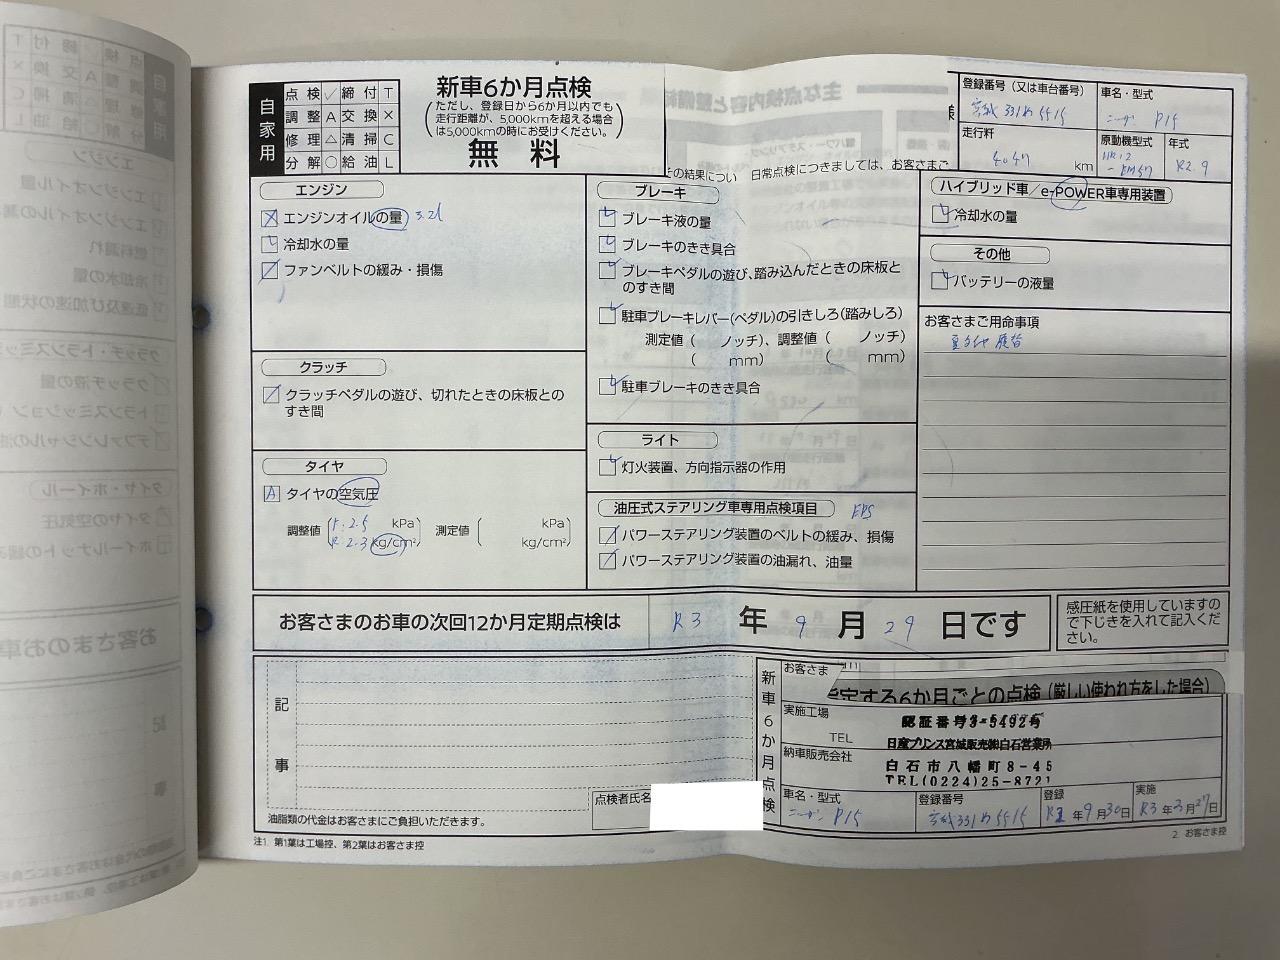 自家用
点検 ✓ 締付 T
調整 A 交換 ×
修理 △ 清掃 C
分解 ○ 給油 L
新車6か月点検
(ただし、登録日から6か月以内でも
走行距離が、5,000kmを超える場合
は5,000kmの時にお受けください。)
無料
主な点検内容と整備
その結果につい 日常点検につきましては、お客さまご
様
登録番号(又は車台番号)
宮城 331 め 5515
車名・型式
ニッサン P15
走行料
4047 km
原動機型式
HR12
-EM47
年式
R2.9
エンジン
エンジンオイルの量 3.2l
冷却水の量
ファンベルトの緩み・損傷
クラッチ
クラッチペダルの遊び、切れたときの床板との
すき間
タイヤ
A タイヤの空気圧
調整値 F:2.5 kPa 測定値 kPa
R:2.3 kg/cm² kg/cm²
ブレーキ
ブレーキ液の量
ブレーキのきき具合
ブレーキペダルの遊び、踏み込んだときの床板と
のすき間
駐車ブレーキレバー(ペダル)の引きしろ(踏みしろ)
測定値( ノッチ)、調整値( ノッチ)
( mm) ( mm)
駐車ブレーキのきき具合
ライト
灯火装置、方向指示器の作用
油圧式ステアリング車専用点検項目 EPS
パワーステアリング装置のベルトの緩み、損傷
パワーステアリング装置の油漏れ、油量
ハイブリッド車/e-POWER車専用装置
冷却水の量
その他
バッテリーの液量
お客さまご用命事項
夏タイヤ 履替
お客さまのお車の次回12か月定期点検は R3 年 9 月 29 日です
感圧紙を使用していますの
で下じきを入れて記入くだ
さい。
記事
油脂類の代金はお客さまにご負担いただきます。
点検者氏名
新車6か月点検
お客さま
定する6か月ごとの点検(厳しい使われ方をした場合)
実施工場
TEL
納車販売会社
認証番号3-5492号
日産プリンス宮城販売㈱白石営業所
白石市八幡町8-45
TEL(0224)25-8721
車名・型式
ニッサン P15
登録番号
宮城331め5515
登録
R2年9月30日
実施
R3年3月27日
注1. 第1葉は工場控、第2葉はお客さま控
2. お客さま控